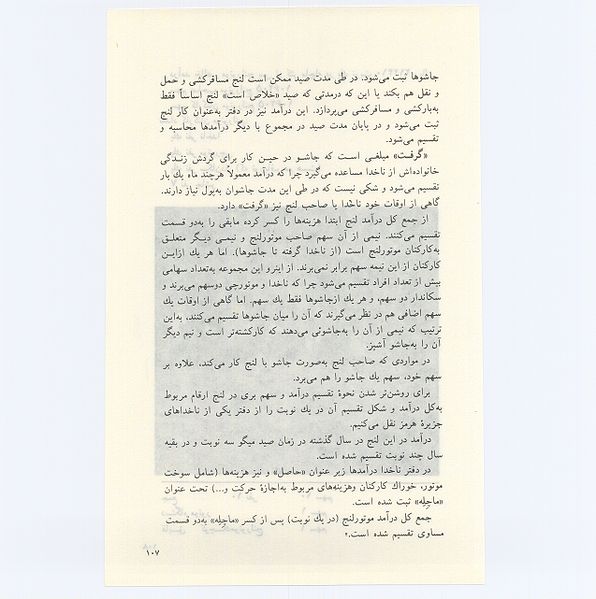 جاشوها ثبت می‌شود. در طی مدت صید ممکن است لنج مسافرکشی و حمل
و نقل هم بکند یا این که درمدتی که صید «خلاص است» لنج اساساً فقط
به‌بارکشی و مسافرکشی می‌پردازد. این درآمد نیز در دفتر به‌عنوان کار لنج
ثبت می‌شود و در پایان مدت صید در مجموع با دیگر درآمدها محاسبه و
تقسیم می‌شود.
«گرفت» مبلغی است که جاشو در حین کار برای گردش زندگی
خانواده‌اش از ناخدا مساعده می‌گیرد چرا که درآمد معمولاً هرچند ماه یك بار
تقسیم می‌شود و شکی نیست که در طی این مدت جاشوان به‌پول نیاز دارند.
گاهی از اوقات خود ناخدا یا صاحب لنج نیز «گرفت» دارد.
از جمع کل درآمد لنج ابتدا هزینه‌ها را کسر کرده مابقی را به‌دو قسمت
تقسیم می‌کنند. نیمی از آن سهم صاحب موتورلنج و نیمی دیگر متعلق
به‌کارکنان موتورلنج است (از ناخدا گرفته تا جاشوها). اما هر یك ازاین
کارکنان از این نیمه سهم برابر نمی‌برند. از اینرو این مجموعه به‌تعداد سهامی
بیش از تعداد افراد تقسیم می‌شود چرا که ناخدا و موتورچی دوسهم می‌برند و
سکاندار دو سهم، و هر یك ازجاشوها فقط یك سهم. اما گاهی از اوقات یك
سهم اضافی هم در نظر می‌گیرند که آن را میان جاشوها تقسیم می‌کنند، به‌این
ترتیب که نیمی از آن را به‌جاشوئی می‌دهند که کارکشته‌تر است و نیم دیگر
آن را به‌جاشو آشپز.
در مواردی که صاحب لنج به‌صورت جاشو با لنج کار می‌کند، علاوه بر
سهم خود، سهم یك جاشو را هم می‌برد.
برای روشن‌تر شدن نحوهٔ تقسیم درآمد و سهم بری در لنج ارقام مربوط
به‌کل درآمد و شکل تقسیم آن در یك نوبت را از دفتر یکی از ناخداهای
جزیرهٔ هرمز نقل می‌کنیم.
درآمد در این لنج در سال گذشته در زمان صید میگو سه نوبت و در بقیه
سال چند نوبت تقسیم شده است.
در دفتر ناخدا درآمدها زیر عنوان «حاصل» و نیز هزینه‌ها (شامل سوخت
موتور، خوراك کارکنان وهزینه‌های مربوط به‌اجازهٔ حرکت و...) تحت عنوان
«ماچِله» ثبت شده است.
جمع کل درآمد موتورلنج (در یك نوبت) پس از کسر «ماچِله» به‌دو قسمت
مساوی تقسیم شده است.
۱۰۷